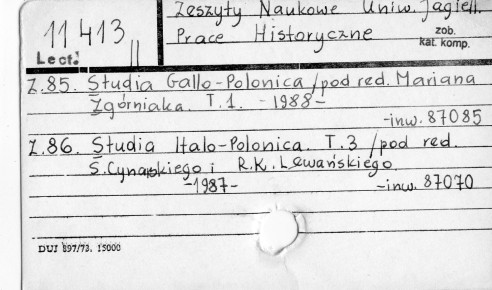 Zeszyty Naukowe Uniw. Jagiell.
11 413 II
Prace Historyczne
zob.
kat. komp.
Lect.
Z.85. Studia Gallo-Polonica /pod red. Mariana
Zgórniaka. T.1. -1988-
-inw. 87085
Z.86. Studia Italo-Polonica. T.3 /pod red.
S. Cynarskiego i R.K. Lewańskiego.
-1987- -inw. 87070
DUJ 897/73. 15000